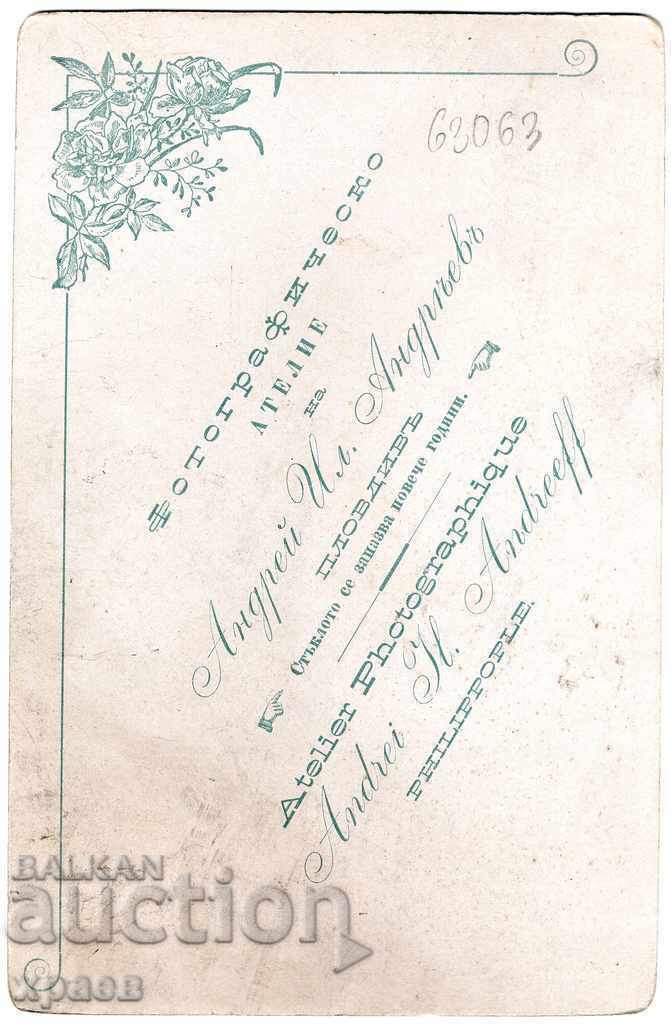 63063
Фотографическо
АТЕЛИЕ
на
Андрей Ил. Андрѣевъ
ПЛОВДИВЪ
Стъклото се запазва повече години.
Atelier Photographique
Andrei H. Andreeff
PHILIPPOPLE.
BALKAN
auction
храев